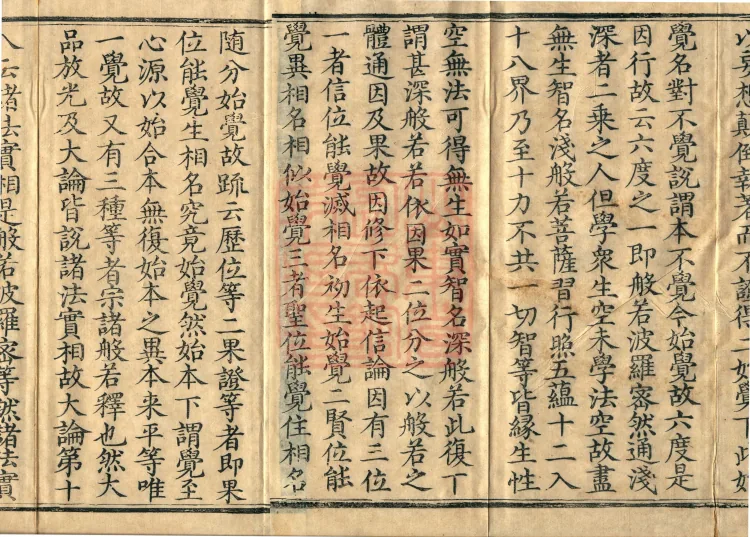 以妄想顛倒執著而不證得二始覺下此始
覺名對不覺說謂本不覺今始覺故六度是
因行故云六度之一即般若波羅蜜然通淺
深者二乘之人但學衆生空未學法空故盡
無生智名淺般若菩薩習行照五蘊十二入
十八界乃至十力不共一切智等皆緣生性
空無法可得無生如實智名深般若此復下
謂甚深般若若依因果二位分之以般若之
體通因及果故因修下依起信論因有三位
一者信位能覺滅相名初生始覺二賢位能
覺異相名相似始覺三者聖位能覺住相名
隨分始覺故疏云歷位等二果證等者即果
位能覺生相名究竟始覺然始本下謂覺至
心源以始合本無復始本之異本来平等唯
一覺故又有三種等者宗諸般若釋也然大
品放光及大論皆說諸法實相故大論第十
八云諸法實相是般若波羅蜜等然諸法實